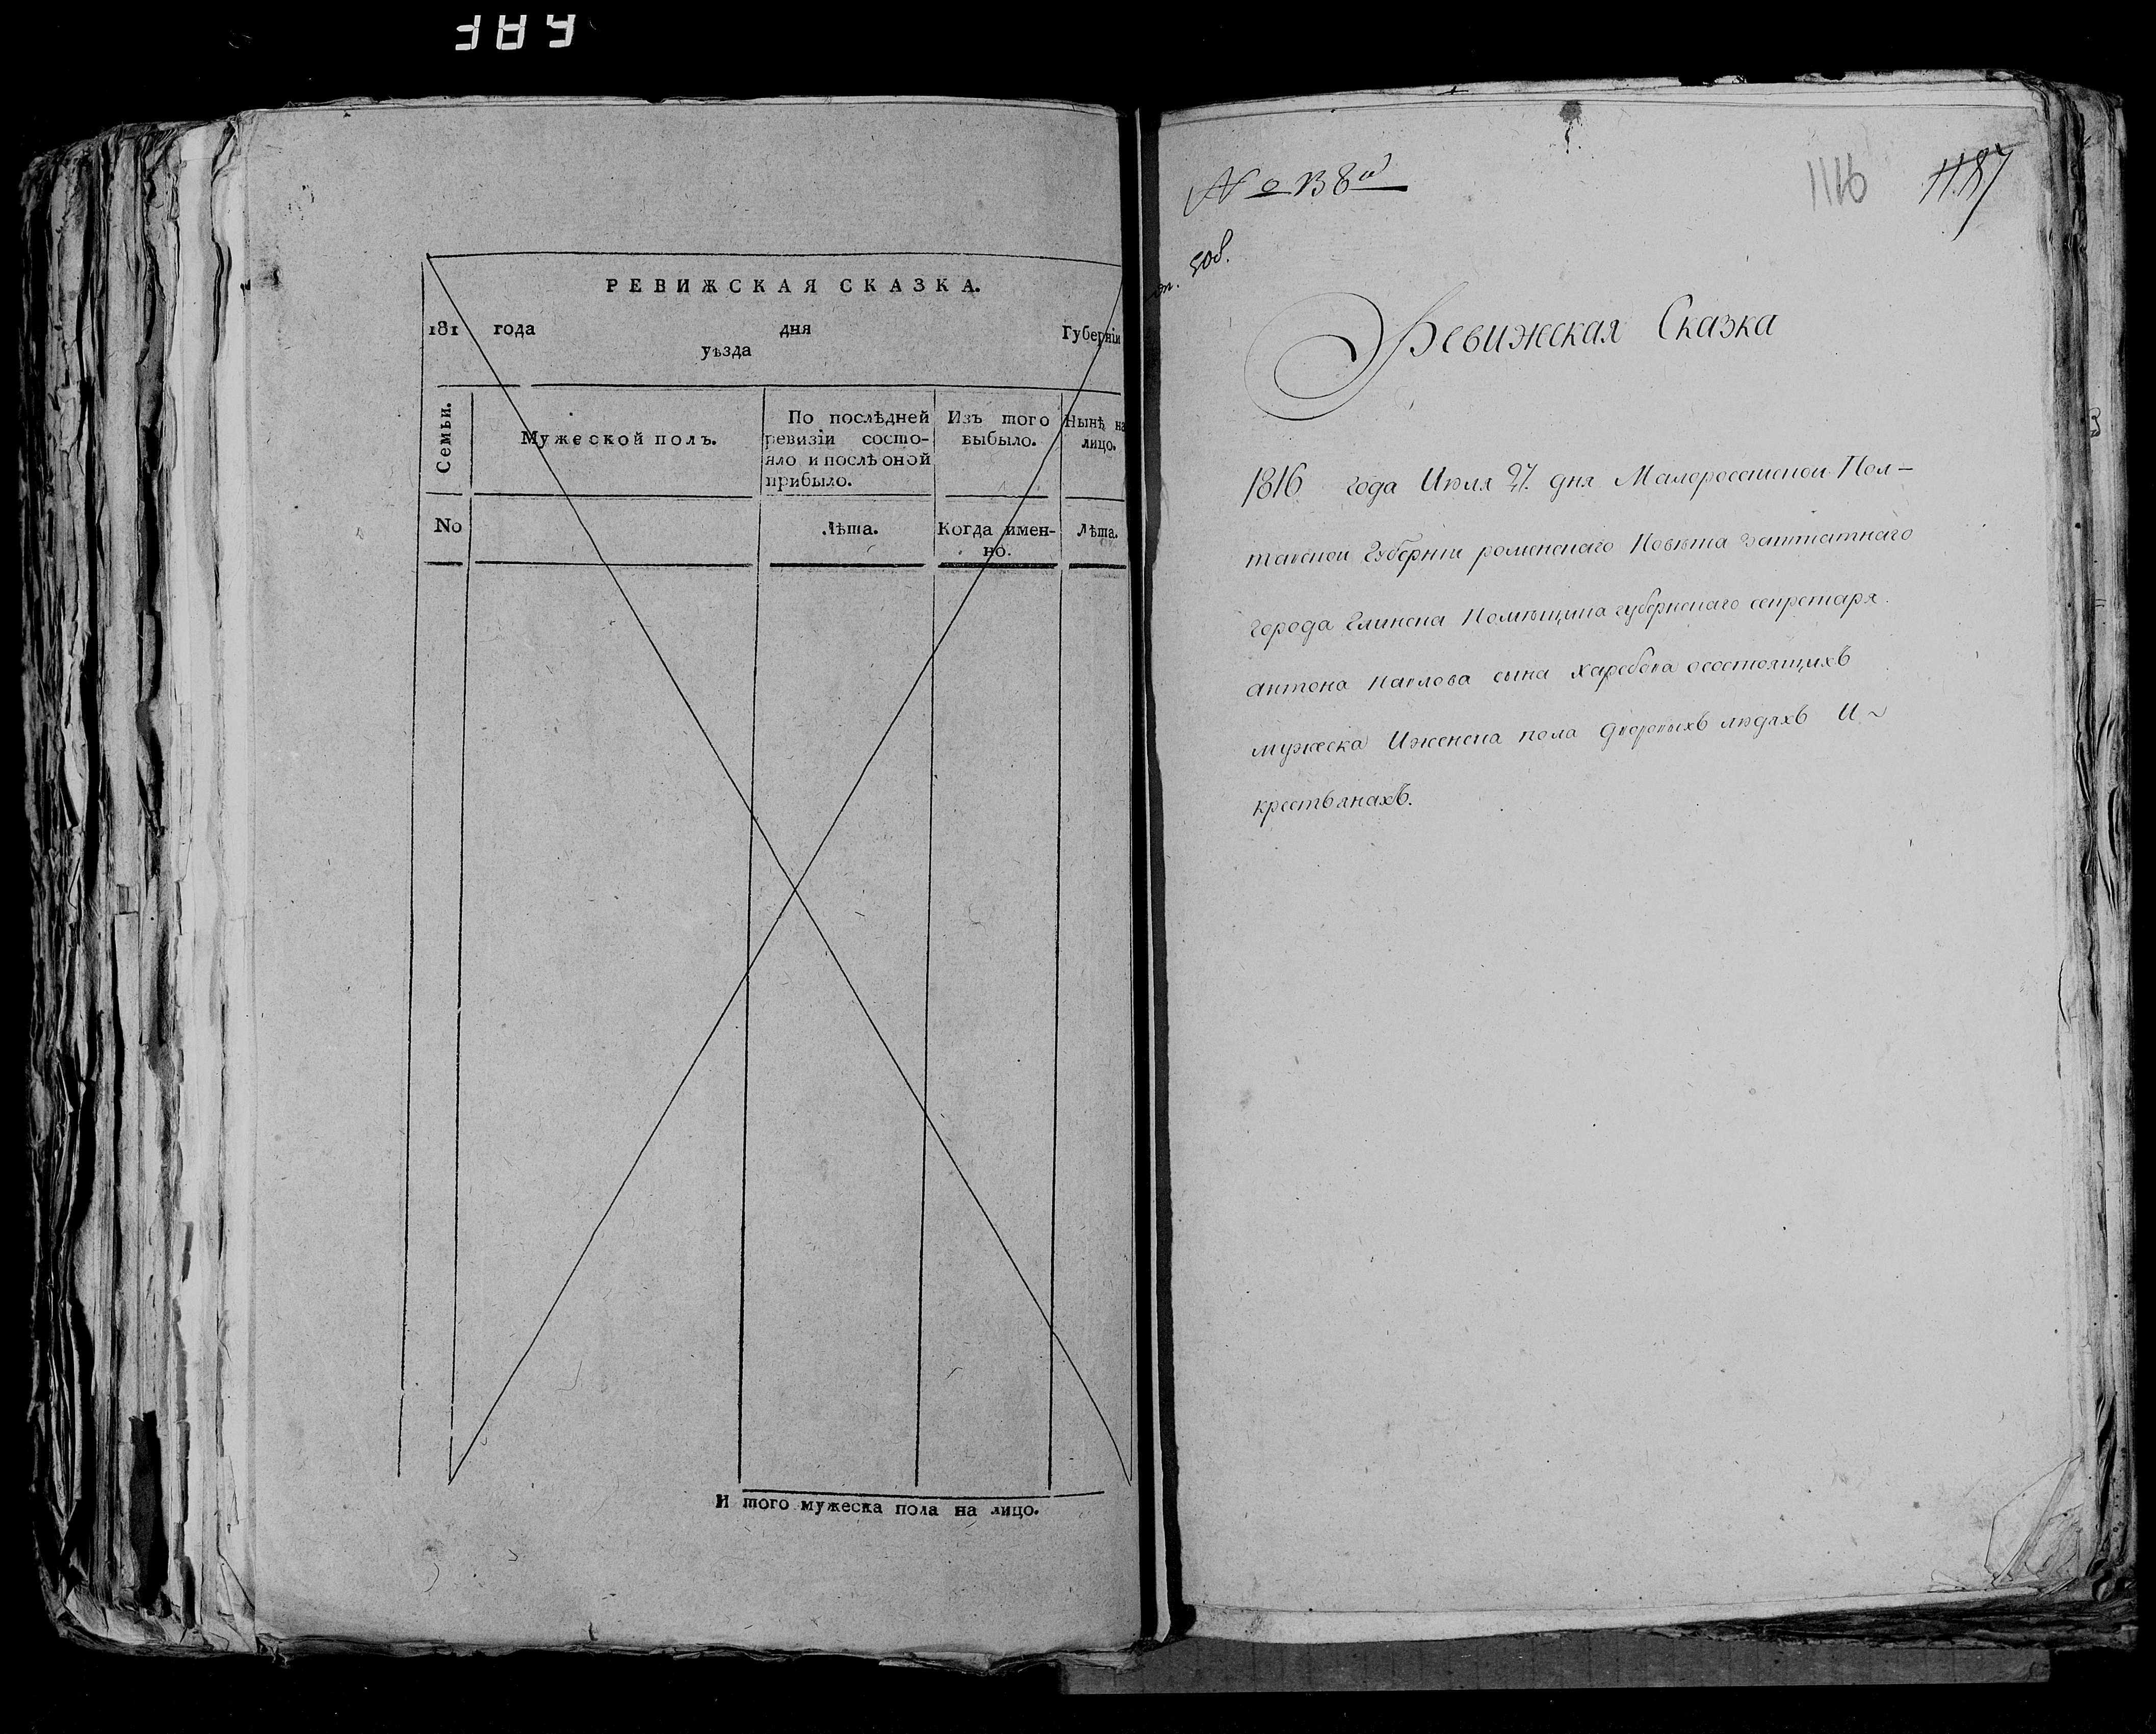 РЕВИЖСКАЯ СКАЗКА.
181 года дня Губерніи
уѣзда
Семьи.
Мужеской полъ.
По послѣдней ревизіи состо-
яло и послѣ оной
прибыло.
Изъ того
выбыло.
Нынѣ на
лицо.
No
Лѣта.
Когда имен-
но.
Лѣта.
И того мужеска пола на лицо.
1116 1187
Ревижская Сказка
1816 года Июля 27. дня Малоросс͏ийской Пол-
тавской Губернїи роменскаго Повѣта Заштатнаго
города Глинска Помѣщика губернскаго секретаря
антона павлова сына осостоящихъ
мужеска Иженска пола дворовыхъ людяхъ И
крестьянахъ.